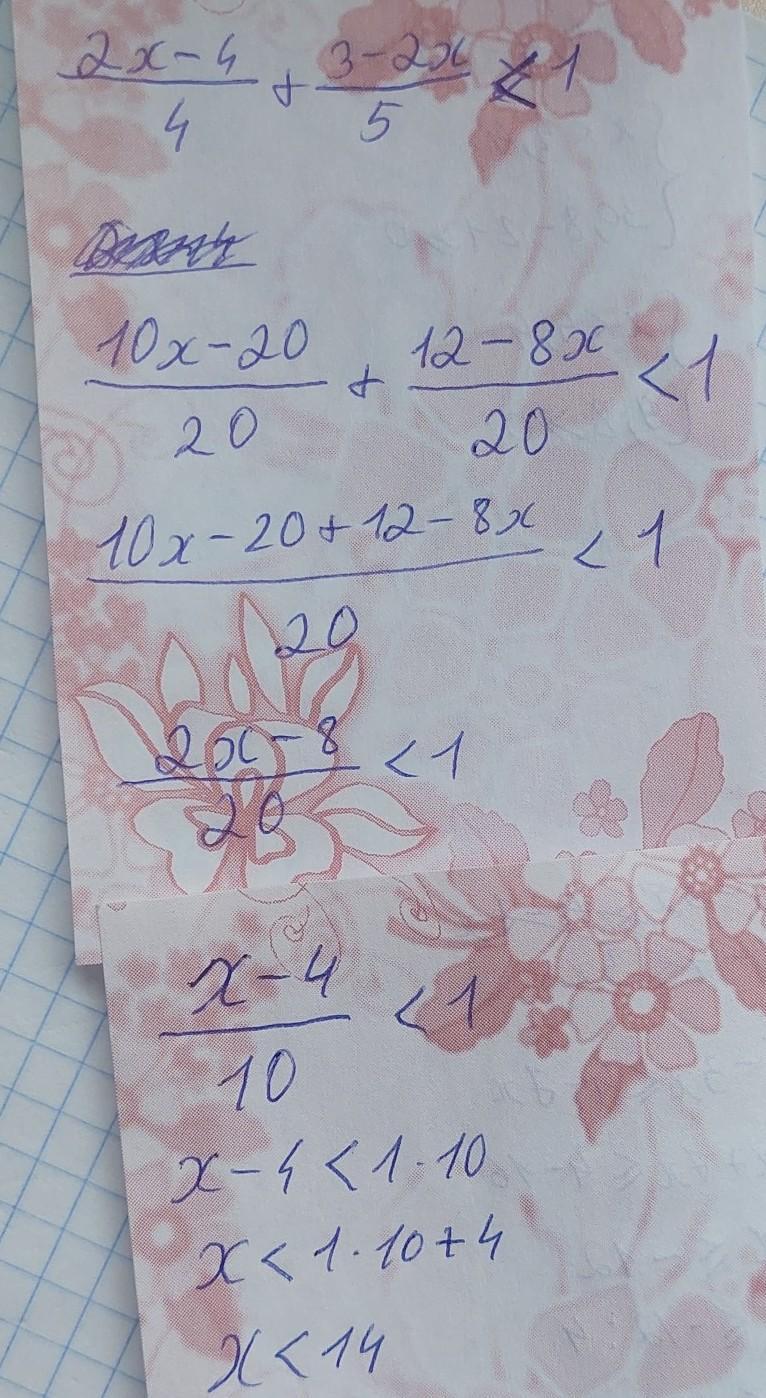 (2x-4)/4 + (3-2x)/5 < 1
(10x-20)/20 + (12-8x)/20 < 1
(10x-20+12-8x)/20 < 1
(2x-8)/20 < 1
(x-4)/10 < 1
x-4 < 1·10
x < 1·10+4
x < 14